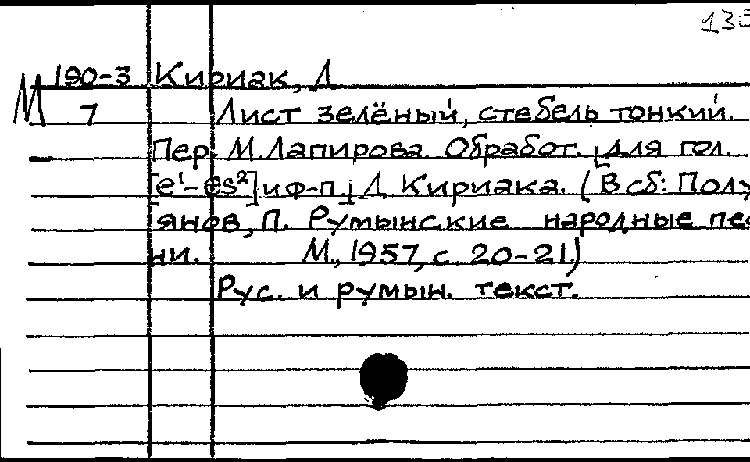 М 190-3 Кириак, Д
7 Лист зелёный, стебель тонкий.
Пер. М. Лапирова. Обработ. [для гол.
[e¹-es²] и ф-п.] Д Кириака. (В сб: Полу
янов, П. Румынские народные пес
ни. М., 1957, с. 20-21)
Рус. и румын. текст.